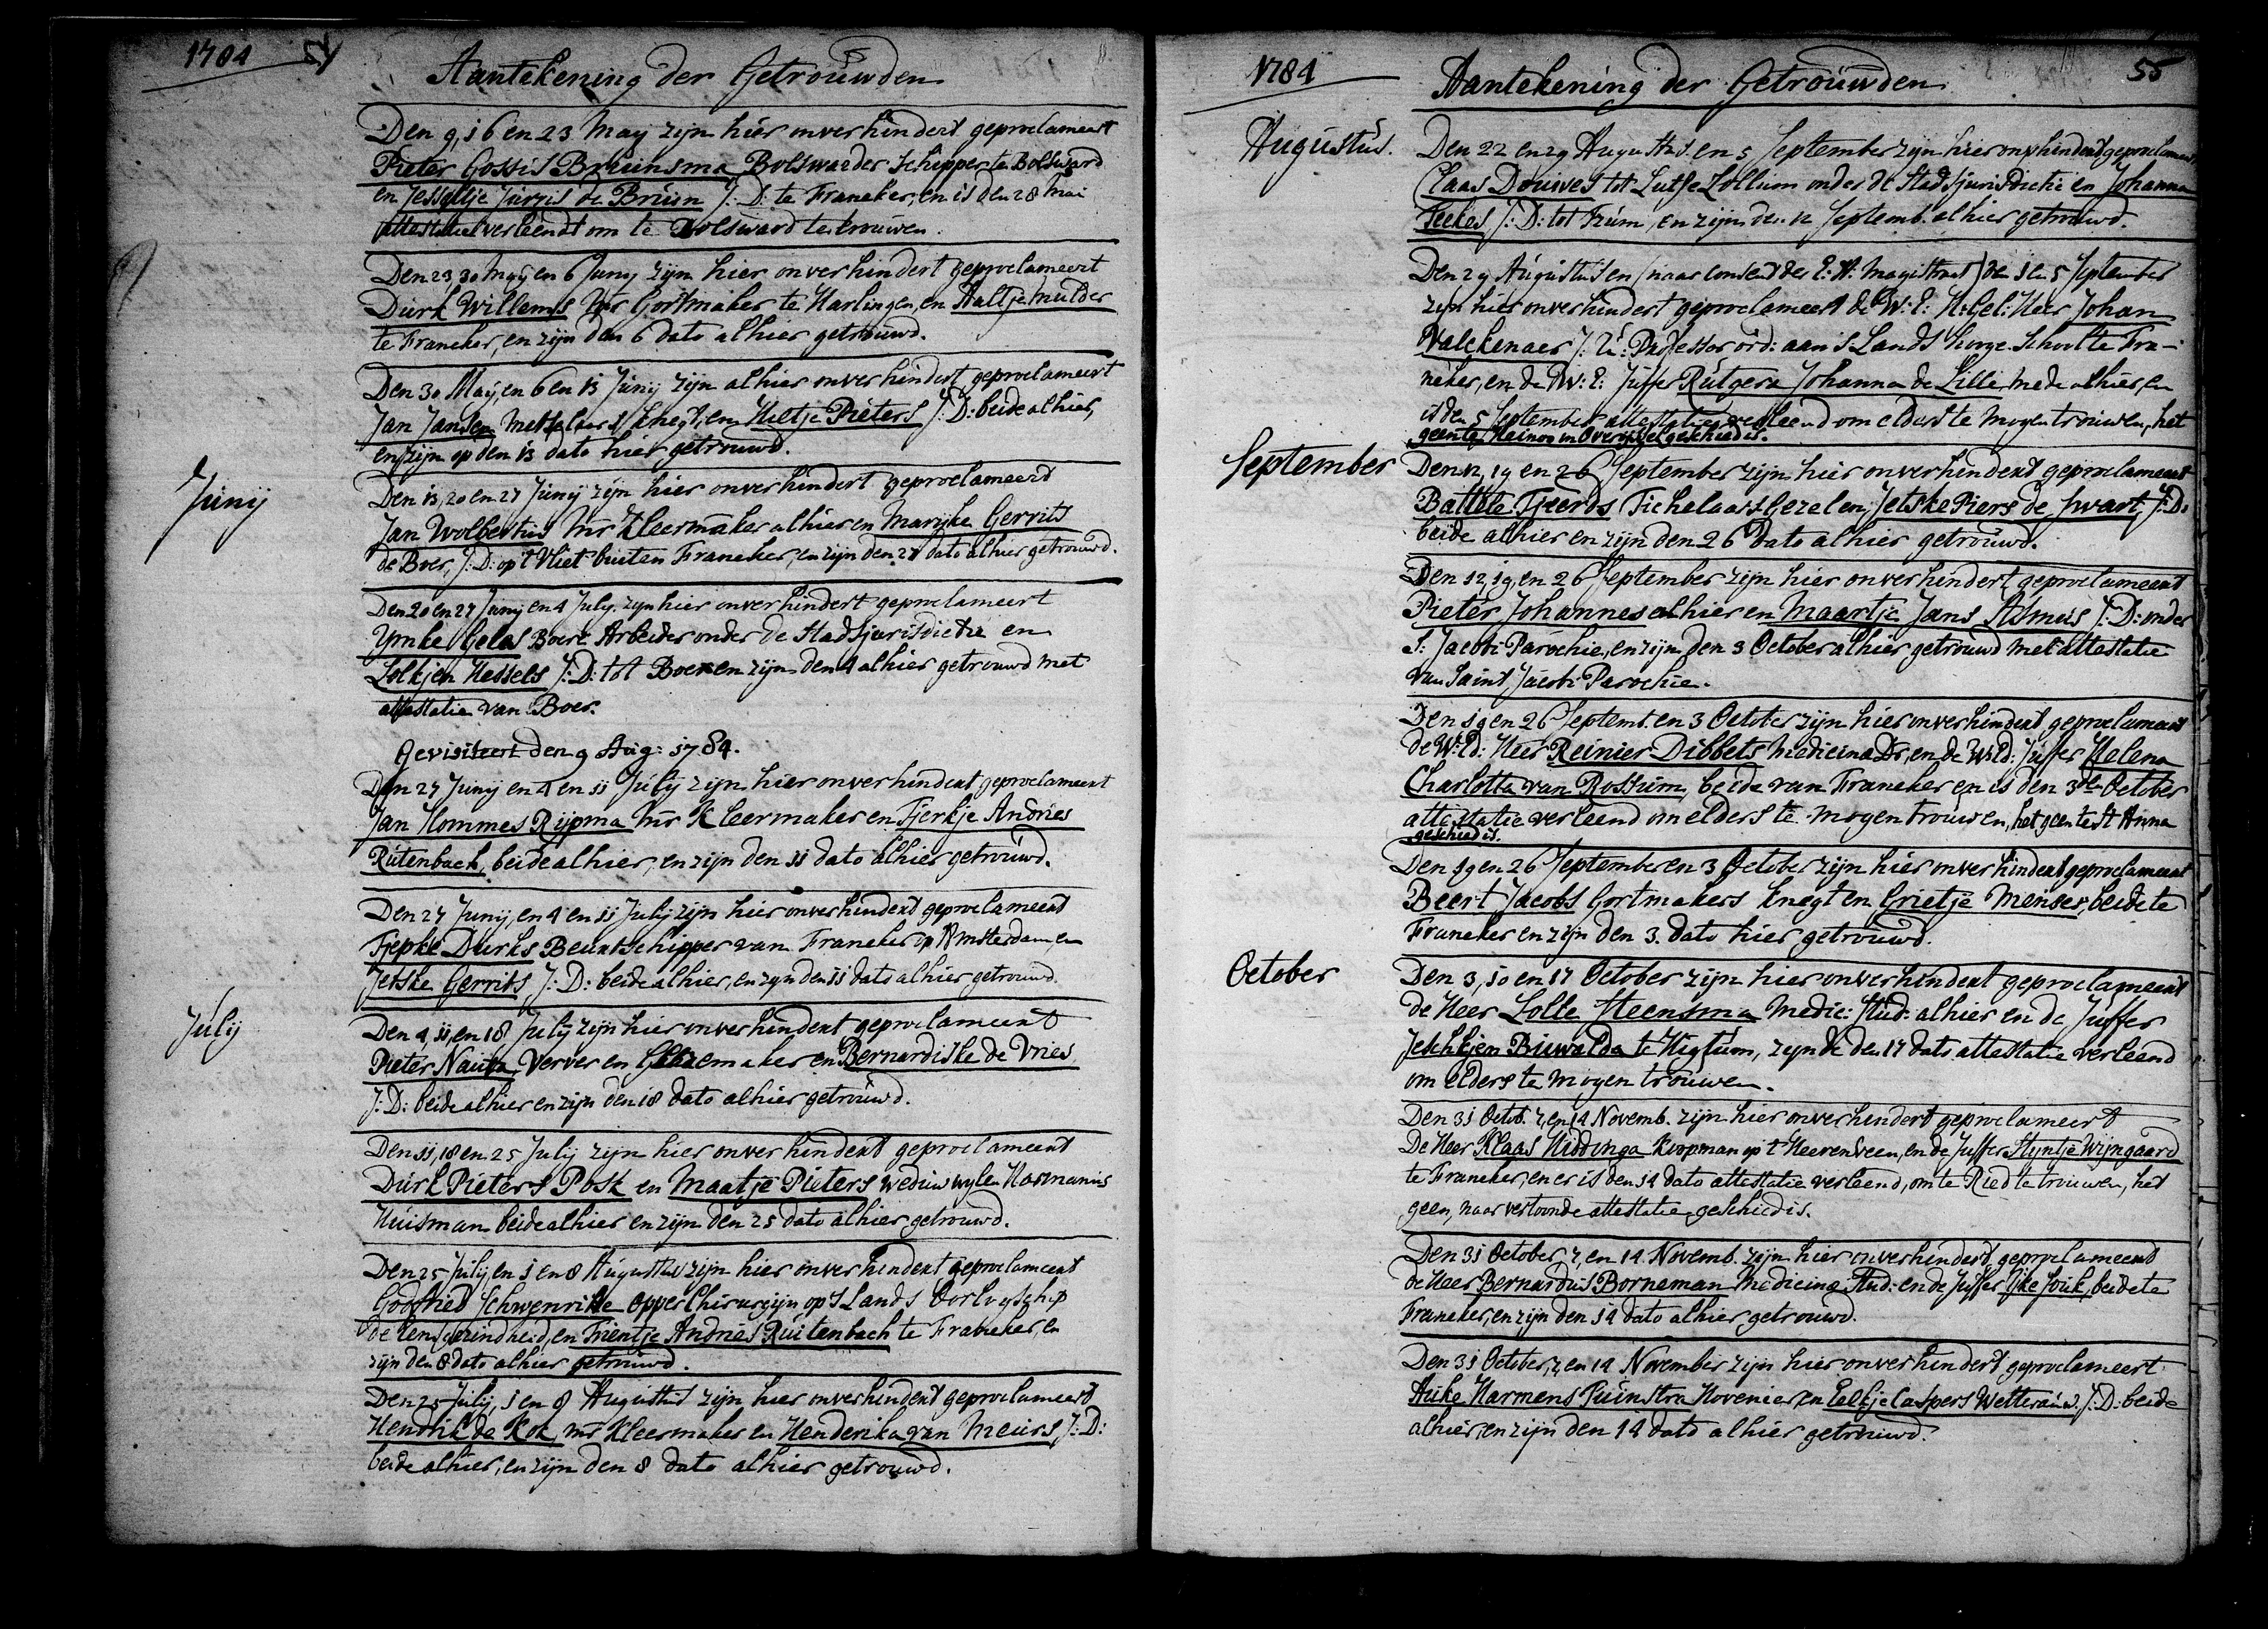 1784 54
Aantekening der Getrouwden
Den 9, 16 en 23 May zijn hier onverhindert geproclameert
Pieter Gossis Bruinsma Bolswarder Schipper te Bolsward
en Jesseltje Jurjis de Bruin J: D: te Franeker, en is den 28 Mai
attestatie verleendt om te Bolsward te trouwen.
Den 23, 30 May en 6 Juny zijn hier onverhindert geproclameert
Durk Willems Mr Gortmaker te Harlingen, en Aaltje Mulder
te Franeker, en zijn den 6 dato alhier getrouwd.
Den 30 May, en 6 en 13 Junij zijn alhier onverhindert geproclameert
Jan Jansen Metselaars knegt, en Hiltje Pieters J: D: beide alhier,
en zijn op den 13 dato hier getrouwd.
Junij
Den 13, 20 en 27 Junij zijn hier onverhindert geproclameerd
Jan Wolbertus Mr Kleermaker alhier en Marijke Gerrits
de Boer, J: D: op 't Vliet buiten Franeker, en zijn den 27 dato alhier getrouwd.
Den 20 en 27 Junij en 4 July zijn hier onverhindert geproclameert
Ymke Gelas Boere Arbeider onder de Stadsjurisdictie en
Lolkjen Hessels J: D: tot Boer en zijn den 4 alhier getrouwd met
attestatie van Boer.
Gevisiteert den 9 Aug: 1784.
Den 27 Junij en 4 en 11 July zijn hier onverhindert geproclameert
Jan Hommes Rijpma Mr Kleermaker en Tjerkje Andries
Rutenbach, beide alhier, en zijn den 11 dato alhier getrouwd.
Den 27 Junij, en 4 en 11 July zijn hier onverhindert geproclameerd
Tjepke Durks Beurtschipper van Franeker op Amsterdam en
Jetske Gerrits, J: D: beide alhier, en zijn den 11 dato alhier getrouwd.
Julij
Den 4, 11, en 18 July zijn hier onverhindert geproclameert
Pieter Nauta Verver en Glazemaker en Bernardiske de Vries
J: D: beide alhier en zijn den 18 dato alhier getrouwd.
Den 11, 18 en 25 July zijn hier onverhindert geproclameert
Durk Pieters Post en Maatje Pieters weduw wylen Harmanus
Huisman beide alhier en zijn den 25 dato alhier getrouwd.
Den 25 July en 1 en 8 Augustus zijn hier onverhindert geproclameert
Godfried Schwenritte opper Chirurgijn op 's Lands Oorlogschip
de Eensgezindheid, en Trientje Andries Ruitenbach te Franeker, en
zijn den 8 dato alhier getrouwd.
Den 25 July, 1 en 8 Augustus zijn hier onverhindert geproclameert
Hendrik de Kok mr Kleermaker en Henderika van Meurs J: D:
beide alhier, en zijn den 8 dato alhier getrouwd.
1784 55
Aantekening der Getrouwden
Augustus.
Den 22 en 29 Augustus en 5 September zijn hier onverhindert geproclameert
Claas Douwes tot Lutje Lollum onder de Stadsjurisdictie en Johanna
Feekes J: D: tot Tzum, en zijn den 12 Septemb. alhier getrouwd.
Den 29 Augustus en (naar consent der E: A: Magistraat) den 1 en 5 September
zijn hier onverhindert geproclameert de W: E: H: Gel: Heer Johan
Valckenaer J: U: Professor ord: aan 's Lands hooge Schoolte Fra-
neker, en de W: E: Juffer Rutgera Johanna de Lille, mede alhier, en
is den 5 September attestatie verleend om elders te mogen trouwen, het
geen te Heinoo in Overijssel geschied is.
September
Den 12, 19 en 26 September zijn hier onverhindert geproclameert
Battele Tjeerds Tichelaars Gezel en Jetske Piers de Swart, J: D:
beide alhier en zijn den 26 dato alhier getrouwd.
Den 12, 19, en 26 September zijn hier onverhindert geproclameert
Pieter Johannes alhier en Maartje Jans Asmus J: D: onder
S: Jacobi Parochie, en zijn den 3 October alhier getrouwd met attestatie
van Saint Jacobi Parochie.
Den 19 en 26 Septemb. en 3 October zijn hier onverhindert geproclameert
de W: Ed: Heer Reinier Dibbets Medicina Dr, en de W: Ed: Juffer Helena
Charlotta van Rossum, beide van Franeker en is den 3de October
attestatie verleend om elders te mogen trouwen, het geen te St Anna
geschied is.
Den 19 en 26 September en 3 October zijn hier onverhindert geproclameert
Beert Jacobs Gortmakers knegt en Grietje Menses, beide te
Franeker en zijn den 3. dato hier getrouwd.
October
Den 3, 10 en 17 October zijn hier onverhindert geproclameert
de Heer Lolle Steensma Medic: Stud: alhier en de Juffer
Jeschjen Buwalda te Higtum, zijnde den 17 dato attestatie verleend
om elders te mogen trouwen.
Den 31 Octob. 7, en 14 Novemb. zijn hier onverhindert geproclameert
De Heer Klaas Hiddinga Koopman op 't Heerenveen, en de Juffer Styntje Wijngaard
te Franeker, en er is den 14 dato attestatie verleend, om te Ried te trouwen, het
geen, naar vertoonde attestatie geschied is.
Den 31 October, 7, en 14 Novemb. zijn hier onverhindert geproclameerd
de Heer Bernardus Borneman Medicina Stud: en de Juffer Ijke Fouk, beide te
Franeker, en zijn den 14 dato alhier getrouwd.
Den 31 October, 7, en 14 November zijn hier onverhindert geproclameert
Auke Harmens Tuinstra Hovenier en Eelkje Caspers Wetterauw. J: D: beide
alhier, en zijn den 14 dato alhier getrouwd.